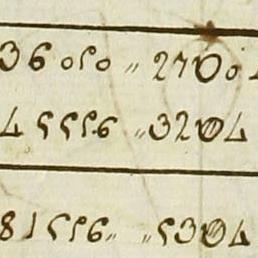 36000 „ 2100
45556 „ 3204
81556 „ „ 5304